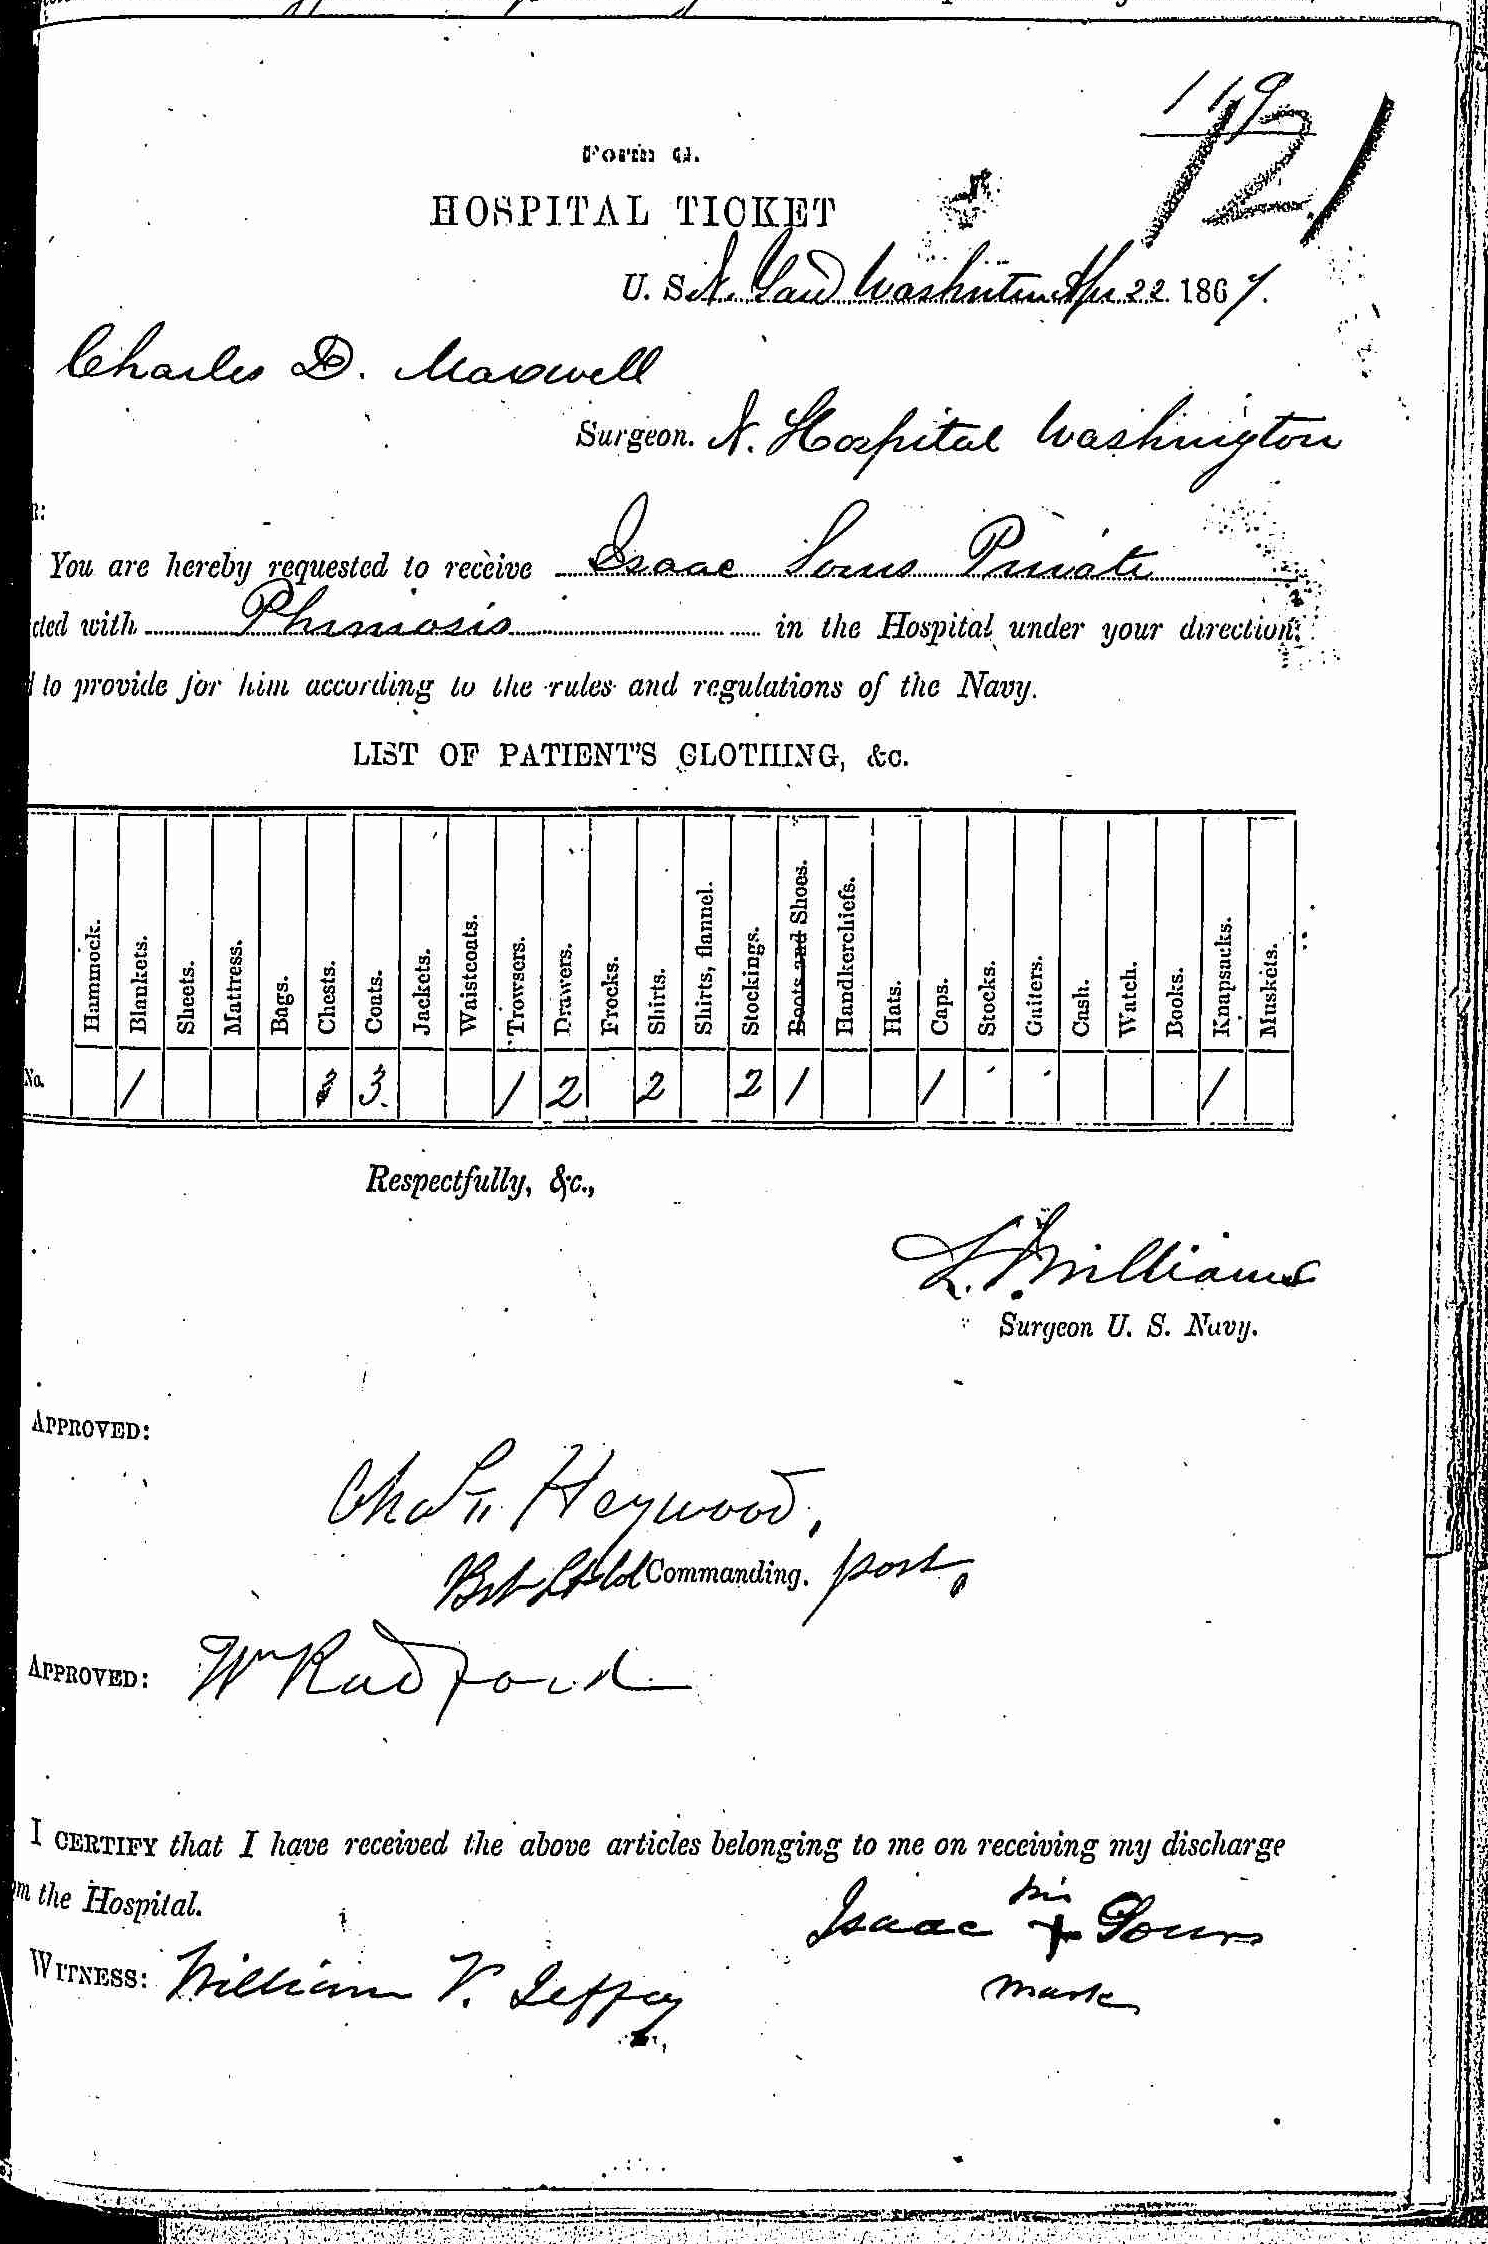 119
121
Form G.
HOSPITAL TICKET
U. S. N. Yard Washington Apr 22 1867.
Charles D. Maxwell
Surgeon. N. Hospital Washington
R:
You are hereby requested to receive Isaac Private
cted with Phimosis in the Hospital under your direction,
d to provide for him according to the rules and regulations of the Navy.
LIST OF PATIENT'S CLOTHING, &c.
Hammock. Blankets. Sheets. Mattress. Bags. Chests. Coats. Jackets. Waistcoats. Trowsers. Drawers. Frocks. Shirts. Shirts, flannel. Stockings. Boots and Shoes. Handkerchiefs. Hats. Caps. Stocks. Gaiters. Cash. Watch. Books. Knapsacks. Muskets.
No. 1 3. 1 2 2 2 1 1 1
Respectfully, &c.,
Williams
Surgeon U. S. Navy.
APPROVED:
Heywood,
Bvt Lt Col Commanding. post.
APPROVED: Wm Radford
I CERTIFY that I have received the above articles belonging to me on receiving my discharge
om the Hospital.
his
Isaac +
mark
WITNESS: William V. Jeffrey